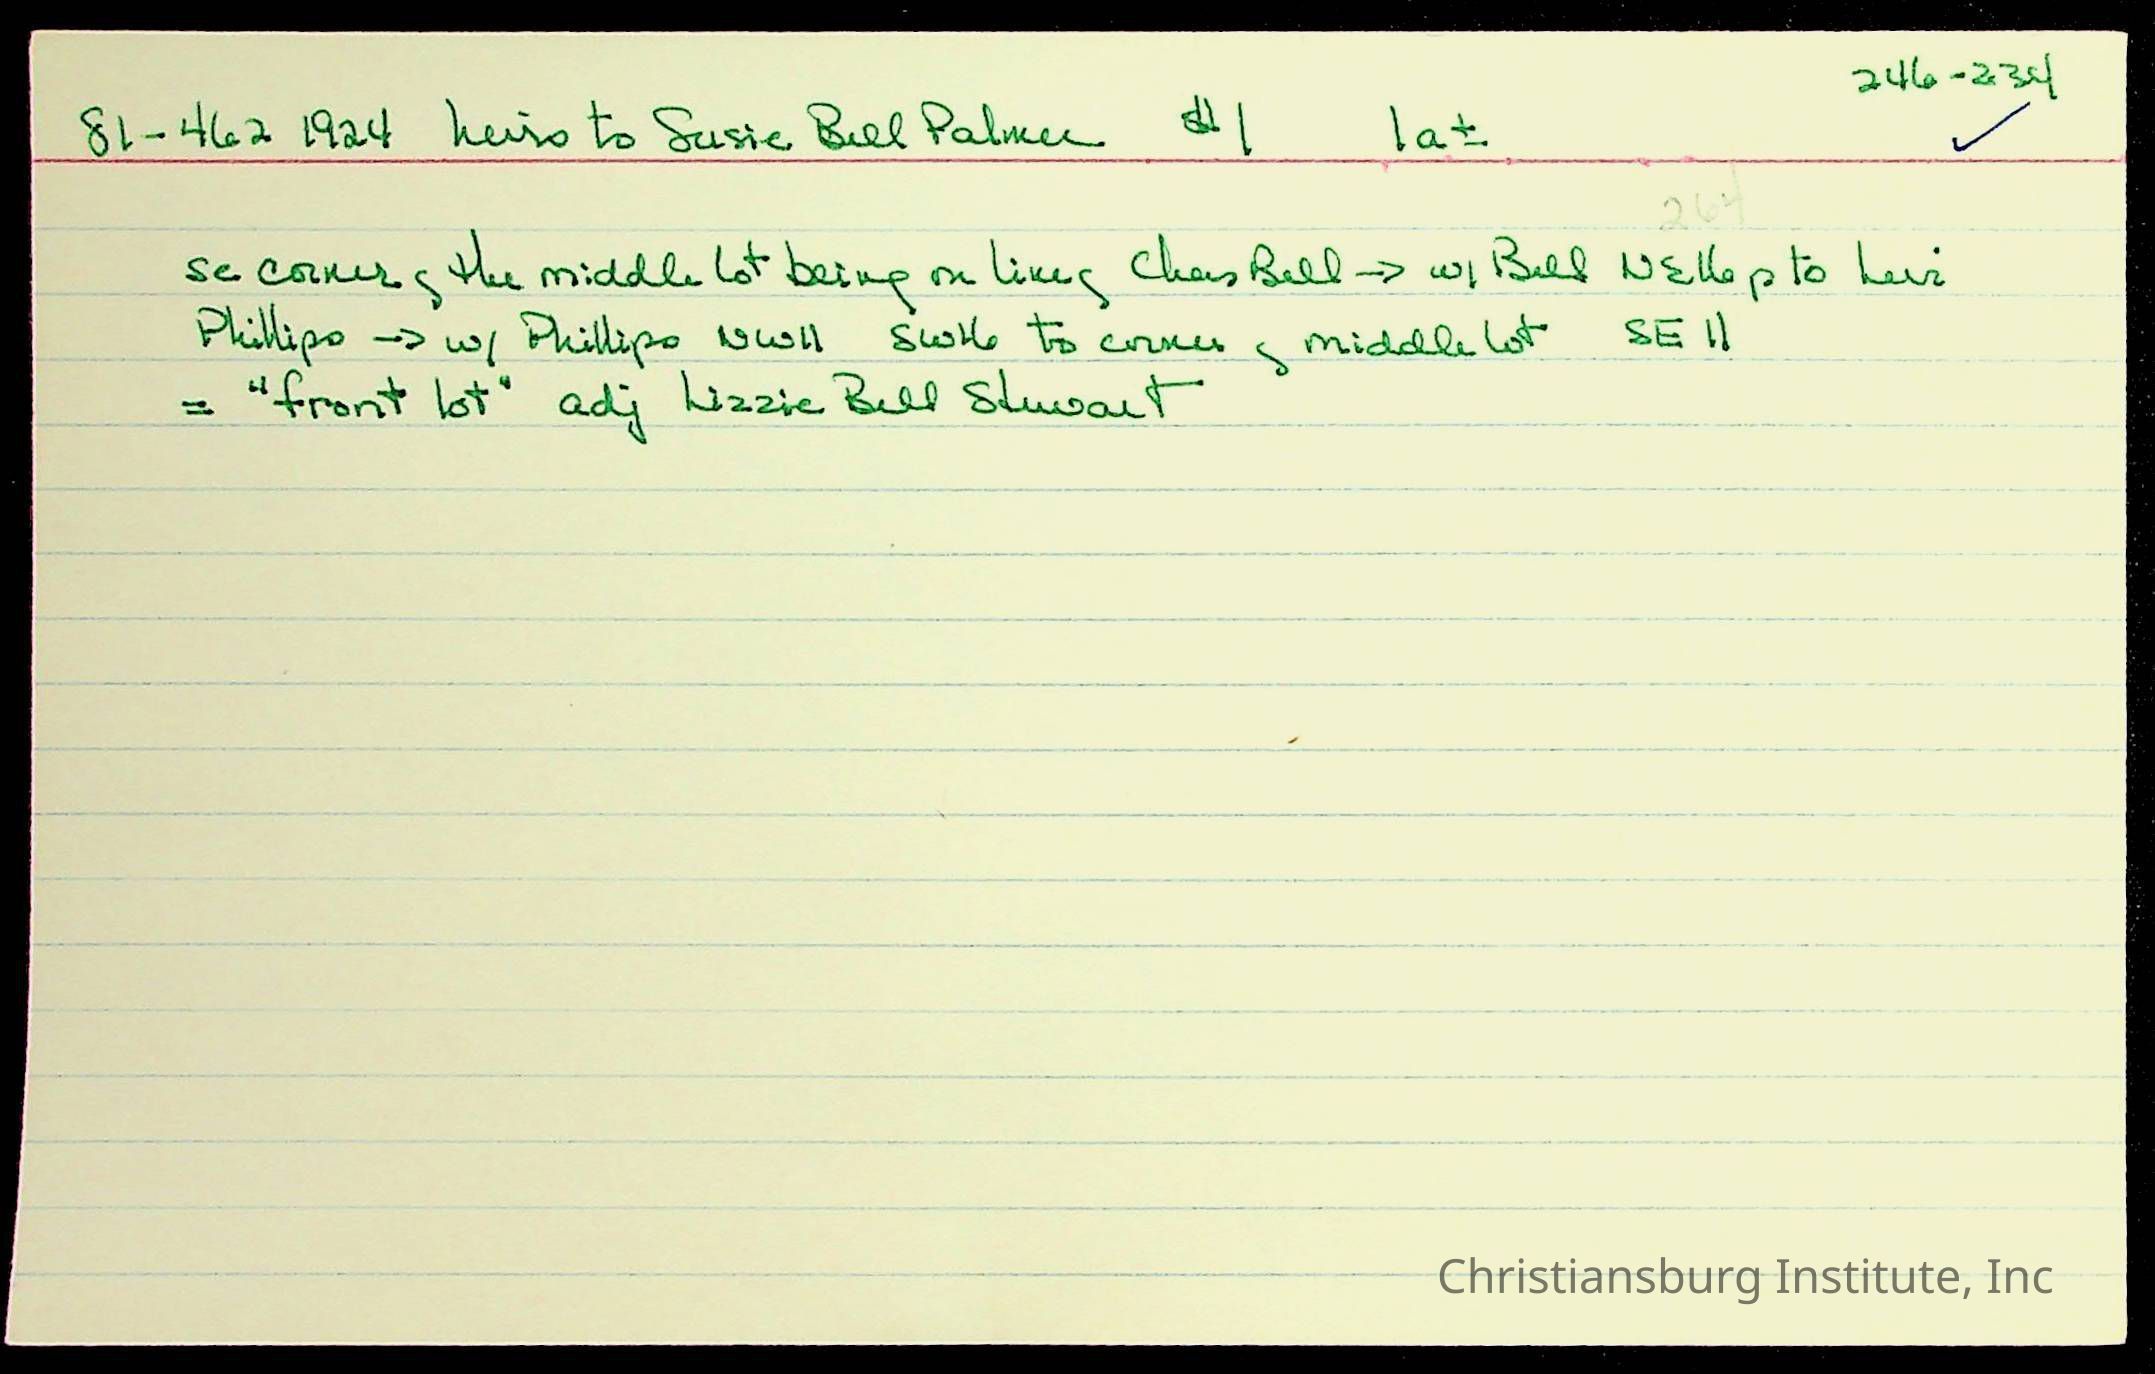 246-234
81-462 1924 heirs to Susie Bell Palmer $1 1a±
264
se corner of the middle lot being on line of Chas Bell → w/ Bell NE16p to Levi
Phillips → w/ Phillips NW11 SW16 to corner of middle lot SE 11
= "front lot" adj Lizzie Bell Stewart
Christiansburg Institute, Inc